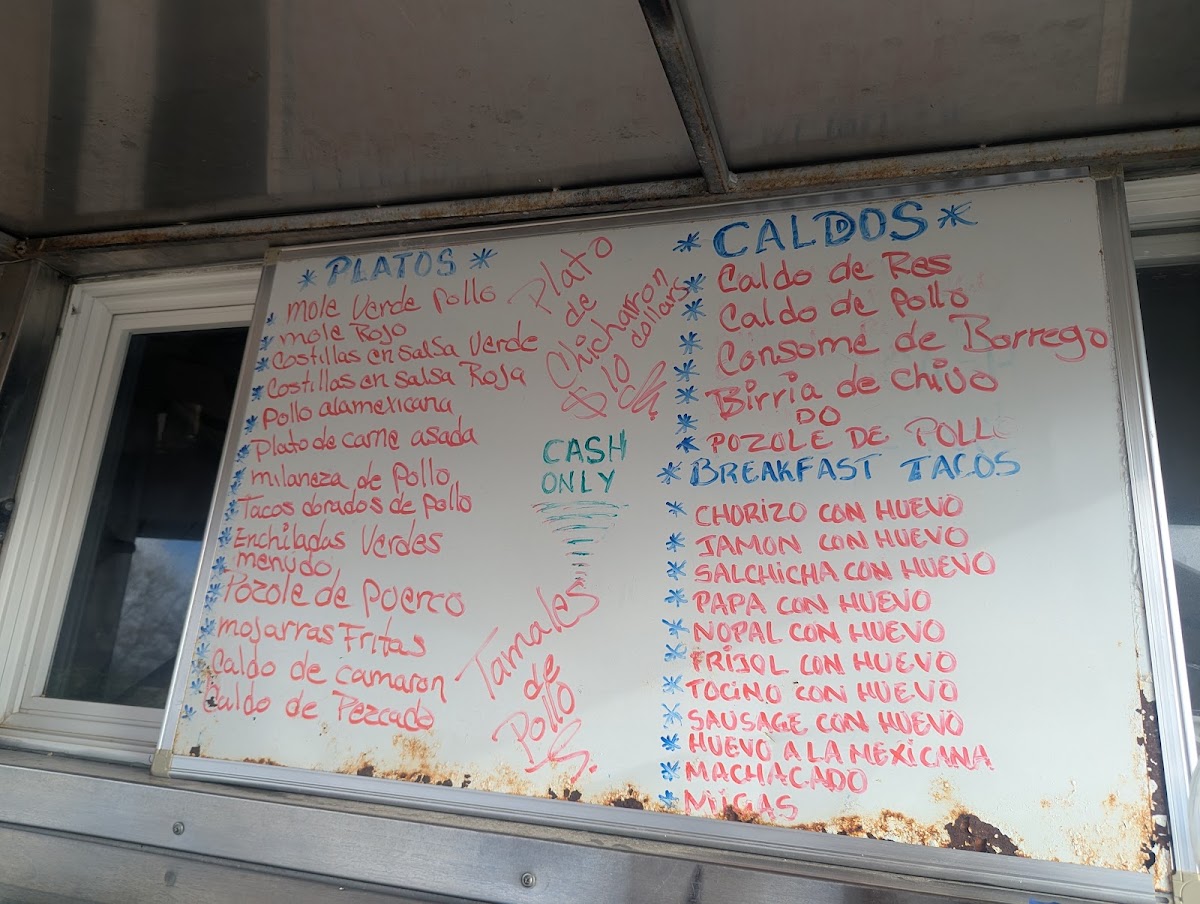 * PLATOS *
* mole Verde pollo
* mole Rojo
* Costillas en salsa Verde
* Costillas en salsa Roja
* Pollo alamexicana
* Plato de carne asada
* milaneza de pollo
* Tacos dorados de pollo
* Enchiladas Verdes
* menudo
* Pozole de puerco
* mojarras Fritas
* Caldo de camaron
* Caldo de Pezcado
Plato
de
Chicharron
$ 10 dollars
CASH
ONLY
Tamales
de
Pollo
* CALDOS *
* Caldo de Res
* Caldo de pollo
* Consome de Borrego
* Birria de chivo
DO
* POZOLE DE POLLO
* BREAKFAST TACOS
* CHORIZO CON HUEVO
* JAMON CON HUEVO
* SALCHICHA CON HUEVO
* PAPA CON HUEVO
* NOPAL CON HUEVO
* FRIJOL CON HUEVO
* TOCINO CON HUEVO
* SAUSAGE CON HUEVO
* HUEVO A LA MEXICANA
* MACHACADO
* MIGAS